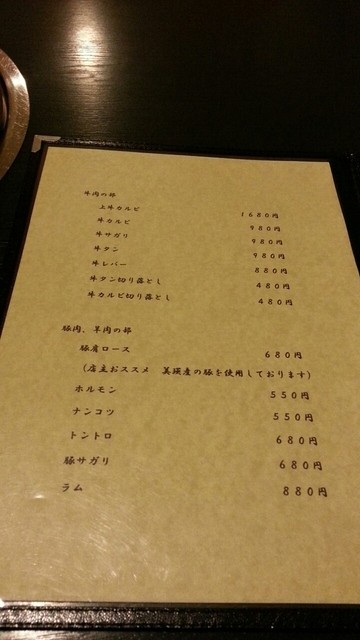 牛肉の部
上牛カルビ 1680円
牛カルビ 980円
牛サガリ 980円
牛タン 980円
牛レバー 880円
牛タン切り落とし 480円
牛カルビ切り落とし 480円
豚肉、羊肉の部
豚肩ロース 680円
(店主おススメ 美瑛産の豚を使用しております)
ホルモン 550円
ナンコツ 550円
トントロ 680円
豚サガリ 680円
ラム 880円